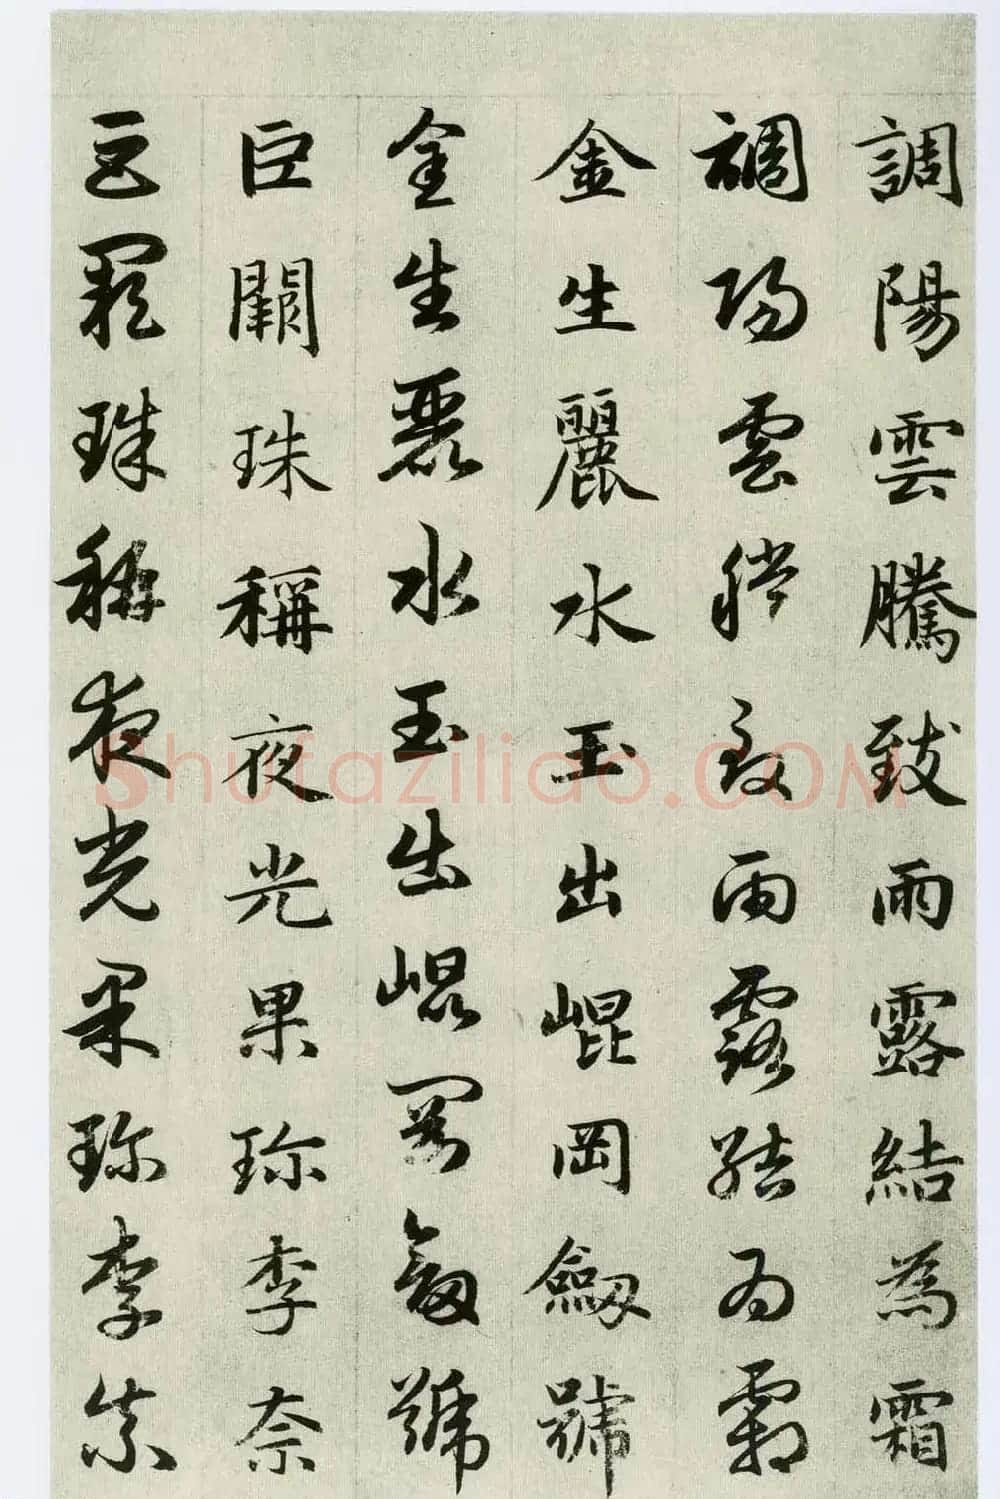 調陽雲騰致雨露結為霜
調陽雲騰致雨露結為霜
金生麗水玉出崐岡劔號
金生麗水玉出崐岡劔號
巨闕珠稱夜光果珎李柰
巨闕珠稱夜光果珎李柰
shufazilido.COM